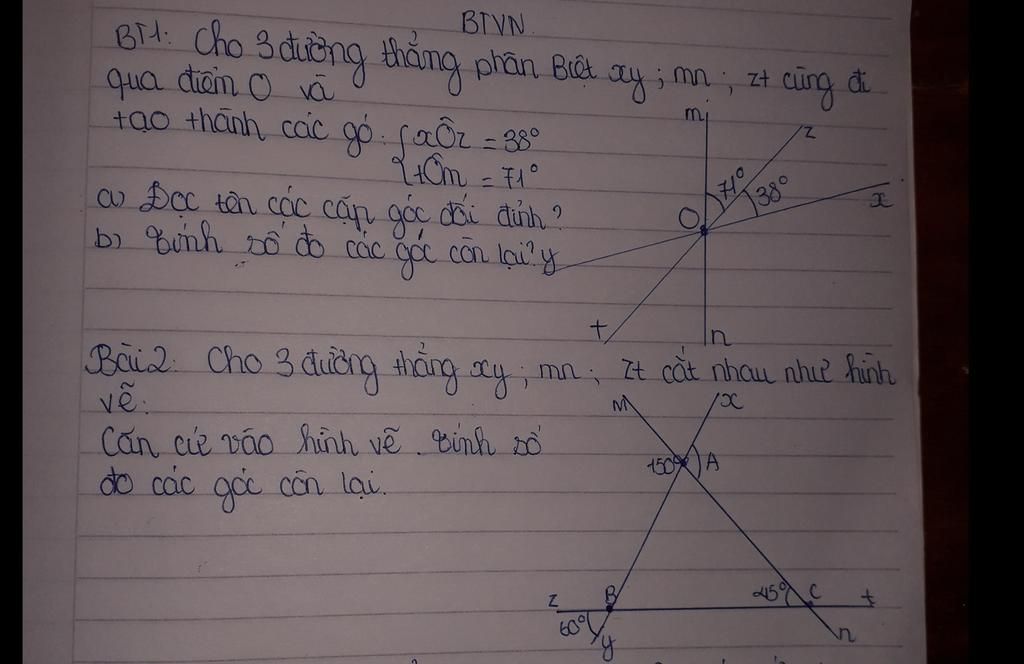 BTVN.
BT1: Cho 3 đường thẳng phân Biệt xy; mn; zt cùng đi
qua điểm O và
tạo thành các gó. { xÔz = 38°
tÔm = 71°
a) Đọc tên các cặp góc đối đỉnh?
b) Tính số đo các góc còn lại?
m
z
71°
38°
x
O
y
t
n
Bài 2: Cho 3 đường thẳng xy; mn; zt cắt nhau như hình
vẽ:
Căn cứ vào hình vẽ. Tính số
đo các góc còn lại.
M
x
150°
A
z
B
45°
C
t
60°
y
n